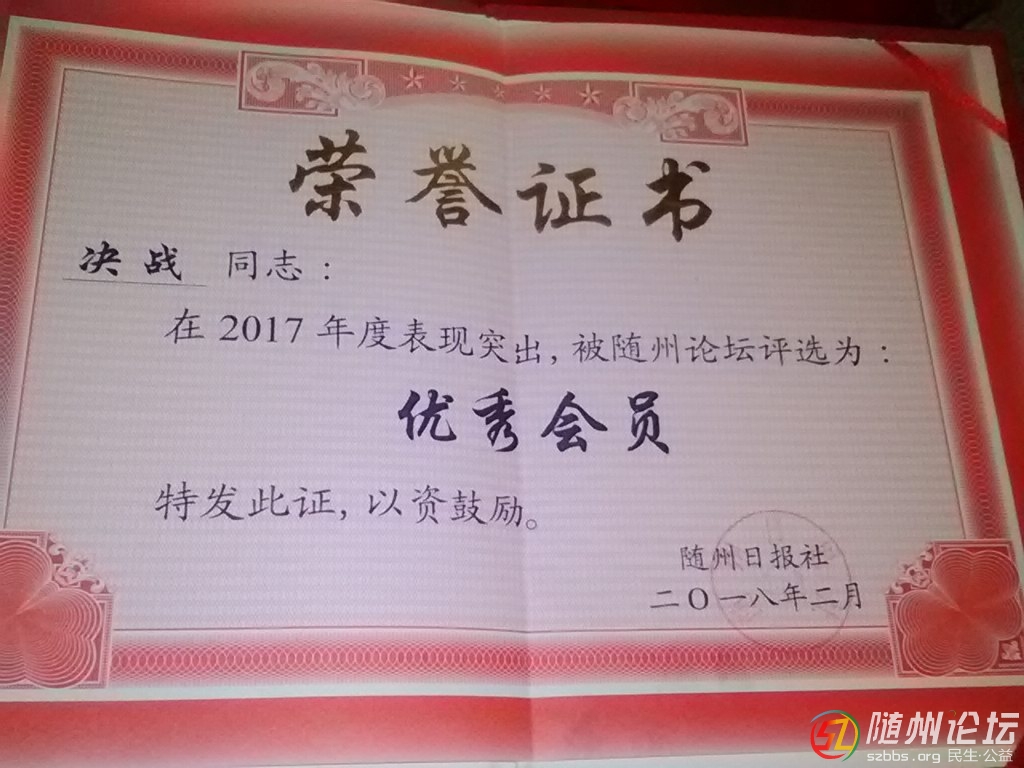 荣誉证书
决战 同志：
在 2017 年度表现突出, 被随州论坛评选为：
优秀会员
特发此证, 以资鼓励。
随州日报社
二〇一八年二月
随州论坛
szbbs.org 民生·公益